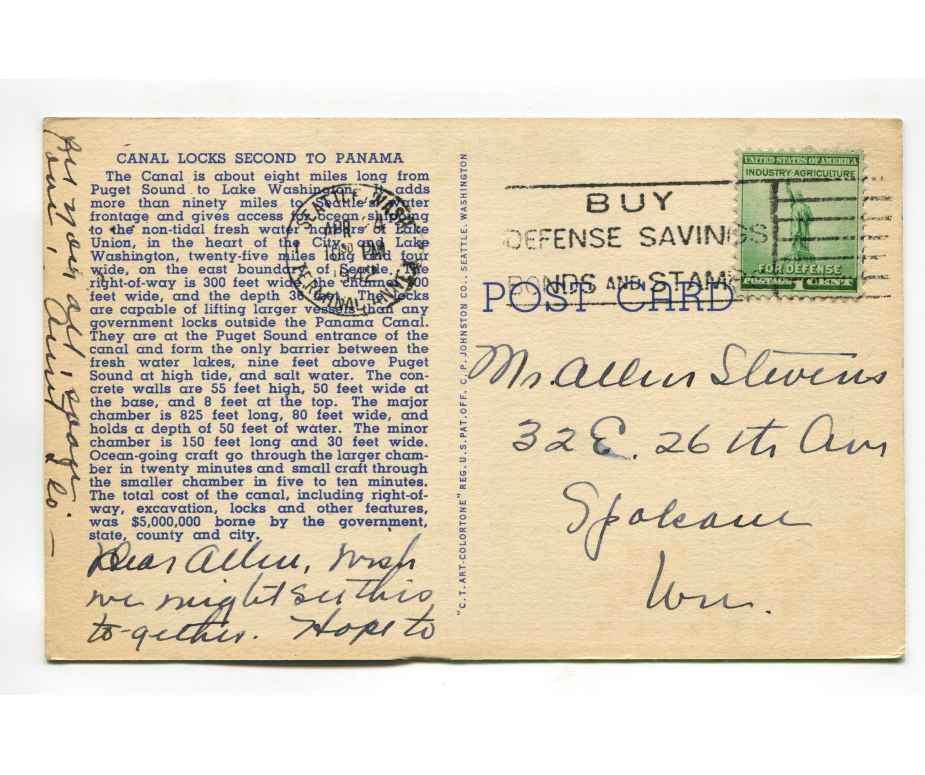 CANAL LOCKS SECOND TO PANAMA
The Canal is about eight miles long from
Puget Sound to Lake Washington. It adds
more than ninety miles to Seattle's water
frontage and gives access to ocean shipping
to the non-tidal fresh water harbors of Lake
Union, in the heart of the City, and Lake
Washington, twenty-five miles long and four
wide, on the east boundary of Seattle. The
right-of-way is 300 feet wide, the channel 100
feet wide, and the depth 36 The locks
are capable of lifting larger vessels than any
government locks outside the Panama Canal.
They are at the Puget Sound entrance of the
canal and form the only barrier between the
fresh water lakes, nine feet above Puget
Sound at high tide, and salt water. The con-
crete walls are 55 feet high, 50 feet wide at
the base, and 8 feet at the top. The major
chamber is 825 feet long, 80 feet wide, and
holds a depth of 50 feet of water. The minor
chamber is 150 feet long and 30 feet wide.
Ocean-going craft go through the larger cham-
ber in twenty minutes and small craft through
the smaller chamber in five to ten minutes.
The total cost of the canal, including right-of-
way, excavation, locks and other features,
was $5,000,000 borne by the government,
state, county and city.
Dear Allen, Wish
we might see this
to-gether. Hope to
see you all, soon.
Love, Aunt Lo —
"C.T. ART-COLORTONE" REG. U.S. PAT. OFF. C. P. JOHNSTON CO., SEATTLE, WASHINGTON
SEATTLE, WASH.
APR
1942
TERMINAL ANNEX
BUY
DEFENSE SAVINGS
BONDS AND STAMPS
UNITED STATES OF AMERICA
INDUSTRY-AGRICULTURE
FOR DEFENSE
POSTAGE 1 CENT
POST CARD
Mr. Allen Stevens
32 E. 26th Ave
Spokane
Wn.